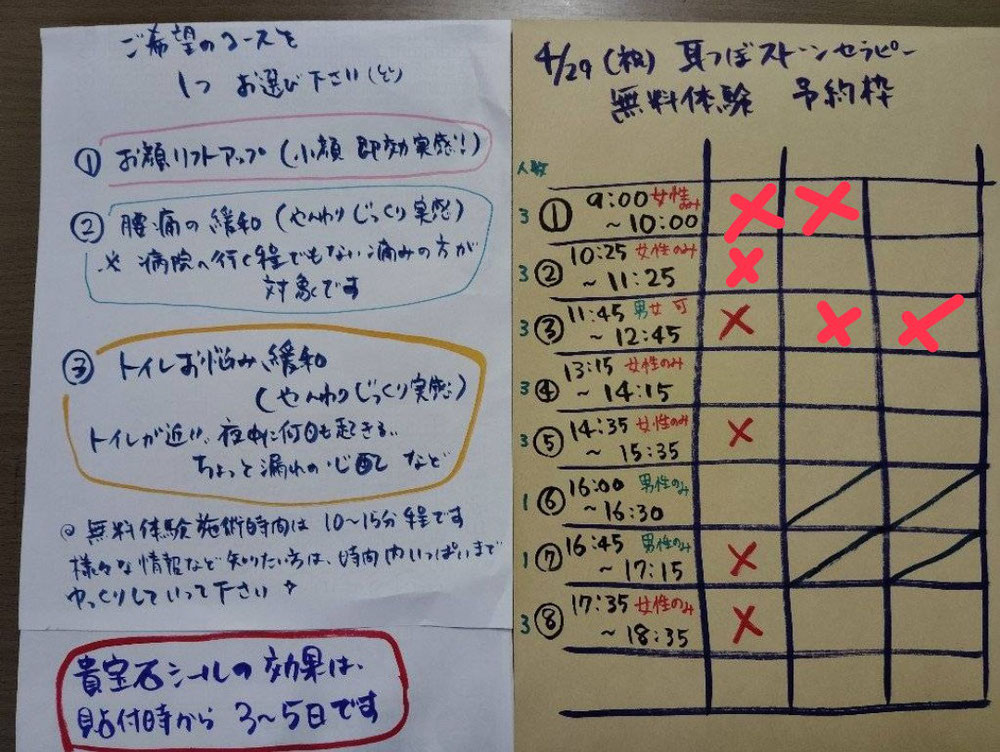 ご希望のコースを
1つ お選び下さい(どれ)
① お顔リフトアップ (小顔 即効実感!)
② 腰痛の緩和 (やんわりじっくり実感)
※ 病院へ行く程でもない痛みの方が
対象です
③ トイレお悩み緩和
(やんわりじっくり実感)
トイレが近い、夜中に何回も起きる、
ちょっと漏れの心配 など
◎ 無料体験施術時間は 10〜15分程です
様々な情報など知りたい方は、時間内いっぱいまで
ゆっくりしていって下さい
貴宝石シールの効果は、
貼付時から 3〜5日です
4/29 (祝) 耳つぼストーンセラピー
無料体験 予約枠
人数
3 ① 9:00 女性のみ
〜10:00
3 ② 10:25 女性のみ
〜11:25
3 ③ 11:45 男女 可
〜12:45
3 ④ 13:15 女性のみ
〜14:15
3 ⑤ 14:35 女性のみ
〜15:35
1 ⑥ 16:00 男性のみ
〜16:30
1 ⑦ 16:45 男性のみ
〜17:15
3 ⑧ 17:35 女性のみ
〜18:35